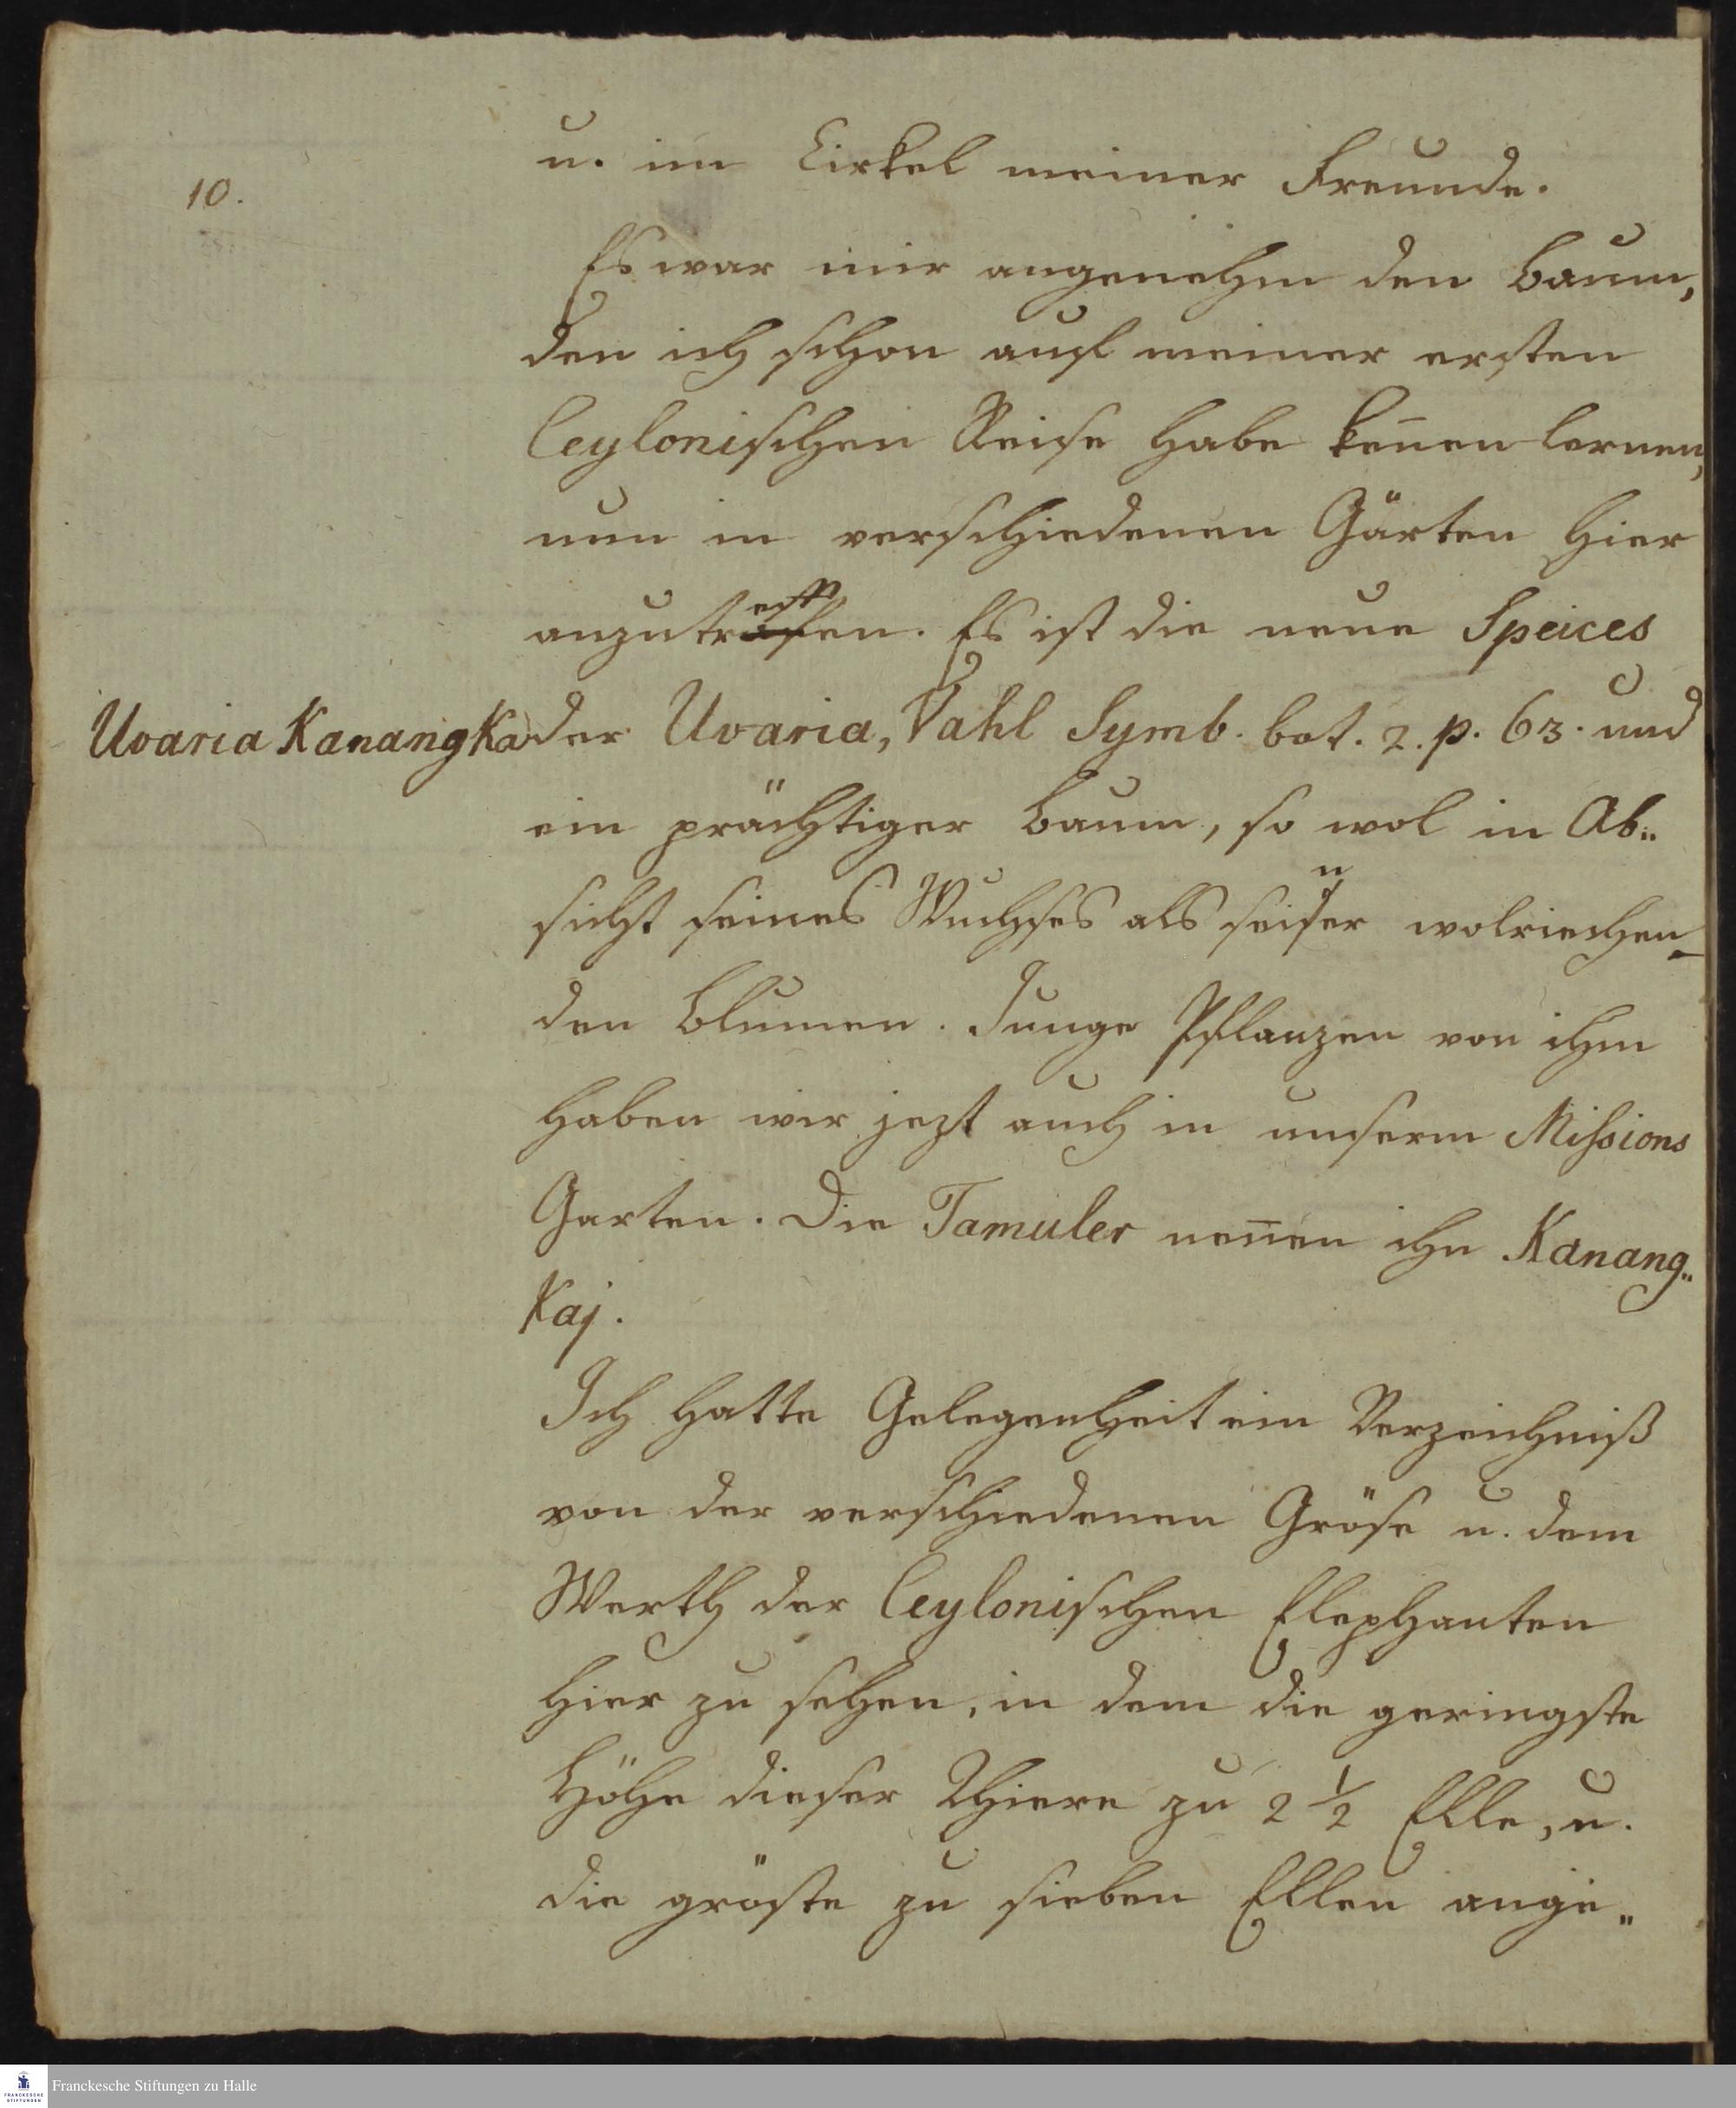 10.
u. im Cirkel meiner Freunde.
Es war mir angenehm den Baum,
den ich schon auf meiner ersten
Ceylonischen Reise habe keñen lernen,
nun in verschiedenen Gärten hier
anzutreffen. Es ist die neue Speices
Uvaria Kanangka
der Uvaria, Vahl Symb. bot. 2. p. 63. und
ein prächtiger Baum, so wol in Ab„
sicht seines Wuchses als seiner wolriechen-
den Blumen. Junge Pflanzen von ihm
haben wir jezt auch in unserm Missions
Garten. Die Tamuler neñen ihn Kanang„
Kaj.
Ich hatte Gelegenheit ein Verzeichniß
von der verschiedenen Gröse u. dem
Werth der Ceylonischen Elephanten
hier zu sehen, in dem die geringste
Höhe dieser Thiere zu 2 1/2 Elle, u.
die gröste zu sieben Ellen ange„
FRANCKESCHE STIFTUNGEN
Franckesche Stiftungen zu Halle